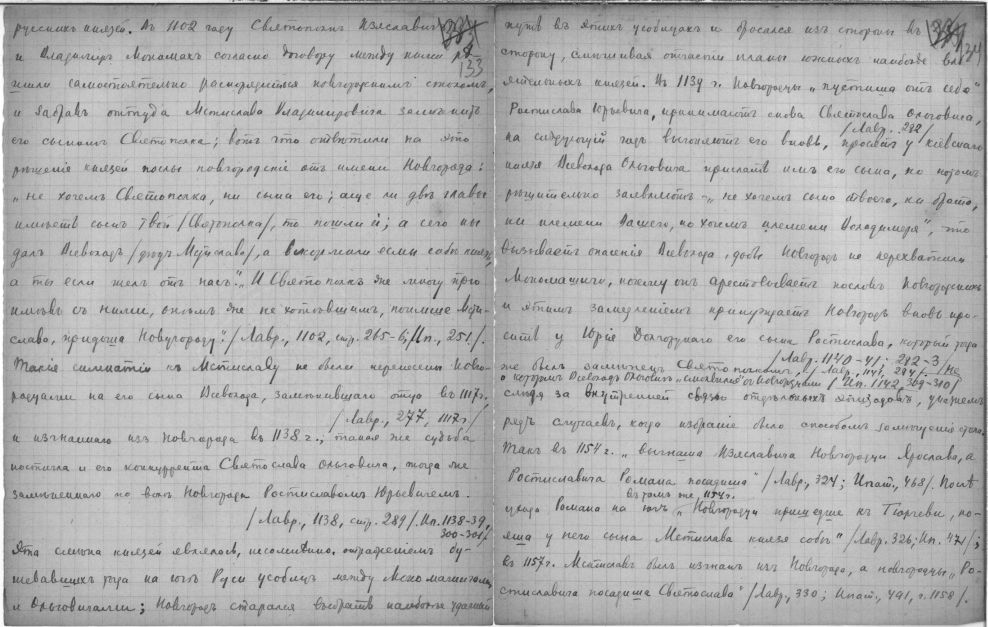 русских князей. Въ 1102 году Святополкъ Изяславичъ
133
и Владимиръ Мономахъ согласно договору между ними рѣ-
шили самостоятельно распорядиться новгородскимъ столомъ,
и забравъ оттуда Мстислава Владимировича замѣнить
его сыномъ Святополка; вотъ что отвѣтили на это
рѣшеніе князей послы новгородскіе отъ имени Новгорода:
"не хочемъ Святополка, ни сына его; аще ли двѣ главы
имѣетъ сынъ твой /Святополка/, то пошли и; а сего ны
далъ Всеволодъ /Мстислава/, а вскормили есмы собѣ князь,
а ты еси шелъ отъ насъ". И Святополкъ же многу прю
имѣвъ съ ними, онѣмъ же не хотѣвшимъ, поимше Мсти-
слава, придоша Новугороду". /Лавр., 1102, стр. 265-6; Ип., 251/.
Такія симпатіи къ Мстиславу не были перенесены Новго-
родцами на его сына Всеволода, замѣнившаго отца въ 1117 г.
/Лавр., 277, 1117 г/
и изгнаннаго изъ Новгорода въ 1138 г.; такая же судьба
постигла и его конкуррента Святослава Ольговича, тогда же
замѣненнаго по волѣ Новгорода Ростиславомъ Юрьевичемъ.
/Лавр., 1138, стр. 289/. Ип. 1138-39,
300-301/
Эта смѣна князей являлась, несомнѣнно, отраженіемъ бу-
шевавшихъ тогда на югѣ Руси усобицъ между Мономашичами
и Ольговичами; Новгородъ старался выбрать наиболѣе удачный
134
путь въ этихъ усобицахъ и бросался изъ стороны въ
сторону, смѣшивая отчасти планы южныхъ наиболѣе вли-
ятельныхъ князей. Въ 1139 г. Новгородцы "пустиша отъ себе"
Ростислава Юрьевича, принимаютъ снова Святослава Ольговича,
/Лавр. 292/
на слѣдующій годъ выгоняютъ его вновь, просятъ у кіевскаго
князя Всеволода Ольговича прислать имъ его сына, но потомъ
рѣшительно заявляютъ "не хочемъ сына твоего, ни брата,
ни племени вашего, но хочемъ племени Володимеря", что
вызываетъ опасенія Всеволода, дабы Новгородъ не перехватили
Мономашичи, почему онъ арестовываетъ пословъ Новгородскихъ
и этимъ замедленіемъ принуждаетъ Новгородъ вновь про-
сить у Юрія Долгорукаго его сына Ростислава, который тогда
/Лавр. 1140-41; 292-3/
же былъ замѣненъ Святополкомъ, /Лавр., 1141, 294/
о которомъ Всеволодъ Ольговичъ Новгородцами /Ип. 1142, 309-310/
слѣдя за внутренней связью отдѣльныхъ эпизодовъ, укажемъ
рядъ случаевъ, когда избраніе было способомъ замѣщенія стола.
Такъ въ 1154 г. "выгнаша Изяславича Новгородци Ярослава, а
Ростиславича Романа посадиша" /Лавр., 324; Ипат., 468/. Послѣ
въ томъ же, 1154 г.
ухода Романа на югъ, "Новгородци пришедше къ Гюргеви, по-
яша у него сына Мстислава князя собѣ" /Лавр. 326; Ип. 471/;
въ 1157 г. Мстиславъ былъ изгнанъ изъ Новгорода, а новгородцы "Ро-
стиславича посадиша Святослава" /Лавр., 330; Ипат., 491, г. 1158/.